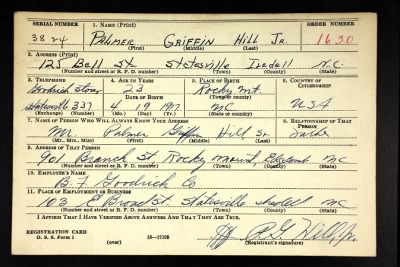 SERIAL NUMBER 1. NAME (Print) ORDER NUMBER
3824 PALMER GRIFFIN HILL JR. 1630
(First) (Middle) (Last)
2. ADDRESS (Print)
125 Bell St Statesville Iredell N.C.
(Number and street or R. F. D. number) (Town) (County) (State)
3. TELEPHONE 4. AGE IN YEARS 5. PLACE OF BIRTH 6. COUNTRY OF CITIZENSHIP
Goodrich Store 23 Rocky Mt.
DATE OF BIRTH (Town or county)
Statesville 337 4 19 NC USA
(Exchange) (Number) (Mo.) (Day) (Yr.) (State or country)
7. NAME OF PERSON WHO WILL ALWAYS KNOW YOUR ADDRESS 8. RELATIONSHIP OF THAT PERSON
Mr. Palmer Griffin Hill Sr. Father
(Mr., Mrs., Miss) (First) (Middle) (Last)
9. ADDRESS OF THAT PERSON
901 Branch St. Rocky Mount, NC
(Number and street or R. F. D. number) (Town) (County) (State)
10. EMPLOYER'S NAME
B. F. Goodrich Co
11. PLACE OF EMPLOYMENT OR BUSINESS
103 E Broad St. Statesville Iredell NC
(Number and street or R. F. D. number) (Town) (County) (State)
I AFFIRM THAT I HAVE VERIFIED ABOVE ANSWERS AND THAT THEY ARE TRUE.
REGISTRATION CARD P.G. Hill, Jr.
D. S. S. Form 1 (over) 16—17105 (Registrant's signature)